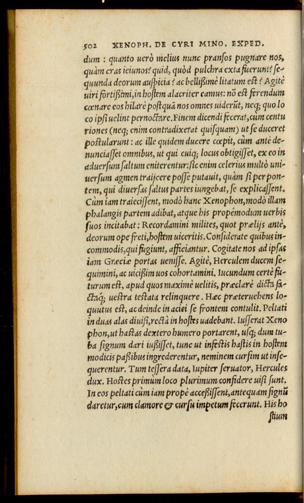 502 XENOPH. DE CYRI MINO. EXPED.
dum : quanto uerò melius nunc pransos pugnare nos,
quàm cras ieiunos? quid, quòd pulchra exta fuerunt? se-
quunda deorum auspicia? ac bellißimè litatum est? Agitè
uiri fortißimi, in hostem alacriter eamus: nõ est ferendum
cœnare eos hilarè postquã nos omnes uiderũt, neq; quo lo
co ipsi uelint pernoctare. Finem dicendi fecerat, cùm centu
riones (neq; enim contradixerat quisquam) ut se duceret
postularunt: ac ille quidem ducere cœpit, cùm antè de-
nunciasset omnibus, ut qui cuiq; locus obtigisset, ex eo in
aduersum saltum eniterentur: sic enim celerius multò uni-
uersum agmen traijcere posse putauit, quàm si per pon-
tem, qui diuersas saltus partes iungebat, se explicassent.
Cùm iam traiecissent, modò hanc Xenophon, modò illam
phalangis partem adibat, atque his propemodum uerbis
suos incitabat: Recordamini milites, quot prælijs antè,
deorum ope freti, hostem uiceritis. Considerate quibus in-
commodis, qui fugiunt, afficiantur. Cogitate nos ad ipsas
iam Græciæ portas uenisse. Agitè, Herculem ducem se-
quimini, ac uicißim uos cohortamini. Iucundum certè fu-
turum est, apud quos maximè uelitis, præclarè dicta fa-
ctaq; uestra testata relinquere. Hæc præteruehens lo-
quutus est, ac deinde in aciẽ se frontem contulit. Peltati
in duas alas diuisi, rectà in hostes uadebant. Iusserat Xeno
phon, ut hastas dextero humero portarent, usq; dum tu-
ba signum dari iußisset, tunc ut infestis hastis in hostem
modicis paßibus ingrederentur, neminem cursim ut inse-
querentur. Tum tessera data, Iupiter seruator, Hercules
dux. Hostes primùm loco plurimum confidere uisi sunt.
In eos peltati cùm iam propè acceßissent, antequam signũ
daretur, cum clamore & cursu impetum fecerunt. His ho
stium